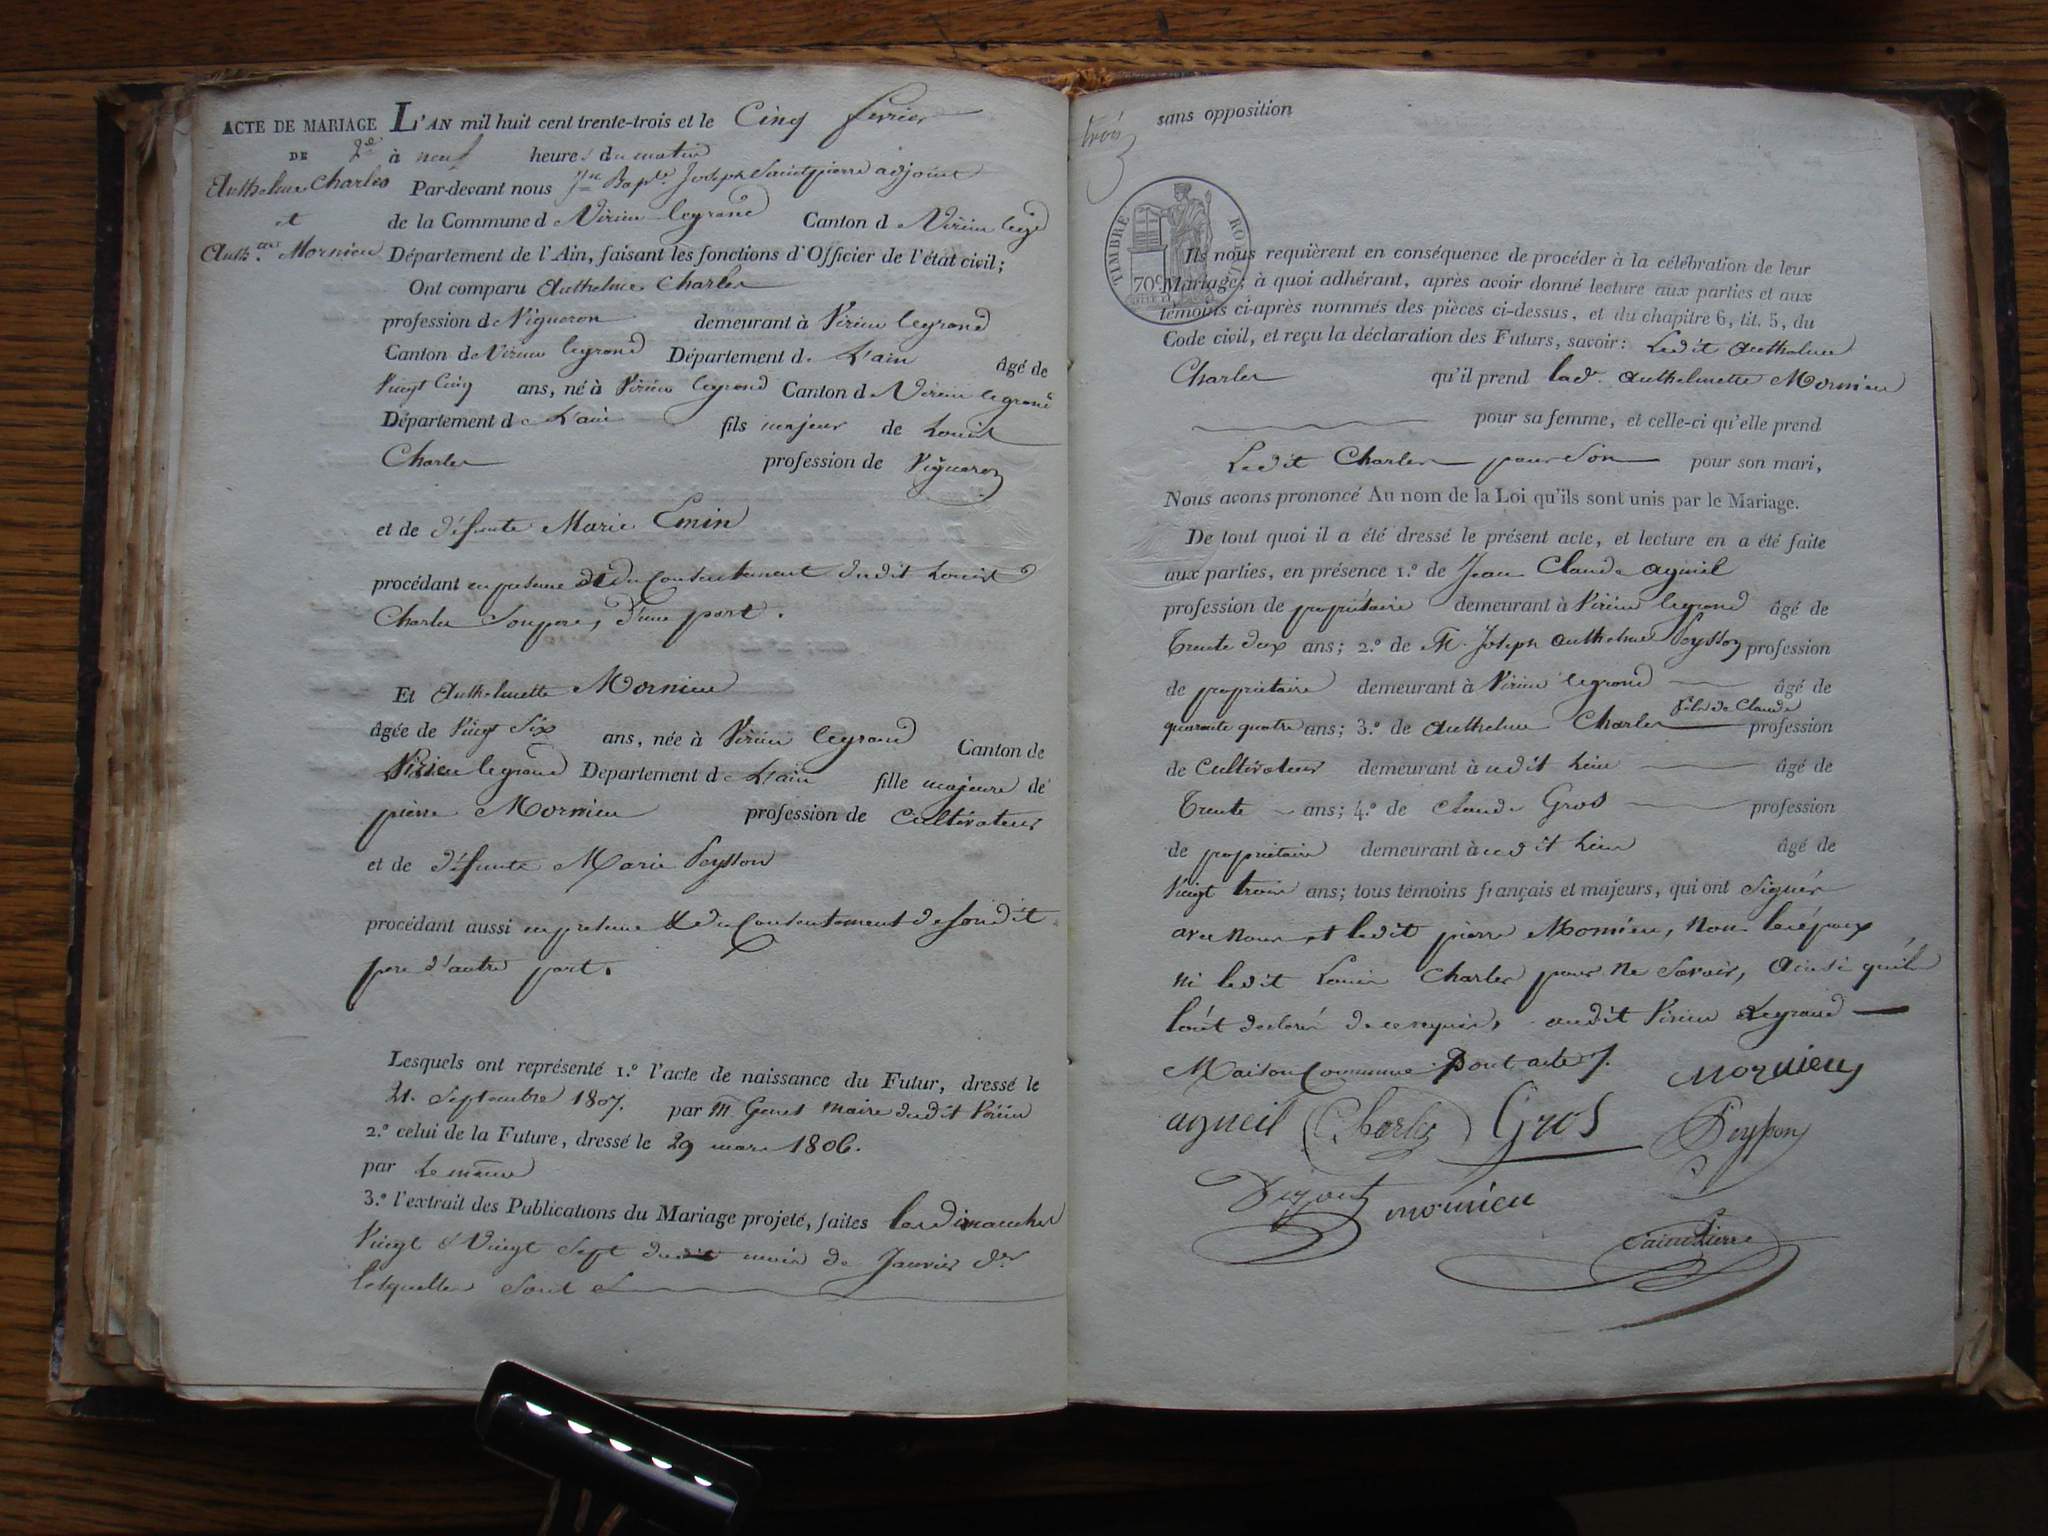 ACTE DE MARIAGE L'AN mil huit cent trente-trois et le Cinq fevrier
DE à neuf heures du matin
Anthelme Charles Par-devant nous Jn Bapte Joseph Saintpierre adjoint
et de la Commune d Virieu legrand Canton d Virieu legd
Anth.tte Mornieu Département de l'Ain, faisant les fonctions d'Officier de l'état civil;
Ont comparu Anthelme Charles
profession de Vigneron demeurant à Virieu legrand
Canton de Virieu legrand Département d. L'ain âgé de
Vingt Cinq ans, né à Virieu legrand Canton de Virieu legrand
Département d L'ain fils majeur de Louis
Charles profession de Vigneron
et de défunte Marie Emin
procédant en presence & du Consentement dudit Louis
Charles Son pere, d'une part.
Et Anthelmette Mornieu
âgée de Vingt Six ans, née à Virieu legrand Canton de
Virieu legrand Département d L'ain fille majeure de
pierre Mornieu profession de Cultivateur
et de défunte Marie Peysson
procédant aussi en presence & du Consentement de Sondit
pere d'autre part.
Lesquels ont représenté 1.º l'acte de naissance du Futur, dressé le
21. Septembre 1807. par M. Genet maire dudit Virieu
2.º celui de la Future, dressé le 29 mars 1806.
par Le même
3.º l'extrait des Publications du Mariage projeté, faites les dimanches
Vingt & Vingt Sept du mois de Janvier dr
lesquelles Sont
trois
3
sans opposition
TIMBRE ROYAL
70c
Ils nous requièrent en conséquence de procéder à la célébration de leur
Mariage; à quoi adhérant, après avoir donné lecture aux parties et aux
témoins ci-après nommés des pièces ci-dessus, et du chapitre 6, tit. 5, du
Code civil, et reçu la déclaration des Futurs, savoir: Ledit Anthelme
Charles qu'il prend lade. Anthelmette Mornieu
pour sa femme, et celle-ci qu'elle prend
Ledit Charles pour Son pour son mari,
Nous avons prononcé Au nom de la Loi qu'ils sont unis par le Mariage.
De tout quoi il a été dressé le présent acte, et lecture en a été faite
aux parties, en présence 1.º de Jean Claude agneil
profession de propriétaire demeurant à Virieu legrand âgé de
Trente deux ans; 2.º de M. Joseph Anthelme Peysson profession
de propriétaire demeurant à Virieu legrand âgé de
quarante quatre ans; 3.º de Anthelme Charles fils de Claude profession
de Cultivateur demeurant à udit Lieu âgé de
Trente ans; 4.º de Claude Gros profession
de propriétaire demeurant à udit Lieu âgé de
Vingt trois ans; tous témoins français et majeurs, qui ont Signés
avec nous et ledit pierre Mornieu, Non les époux
ni ledit Louis Charles pour Ne Savoir, Ainsi qu'ils
l'ont declaré de ce requis, audit Virieu Legrand
Maison Commune Dont acte.
Mornieu
agneil Charles Gros Peysson
mornieu
Saintpierre